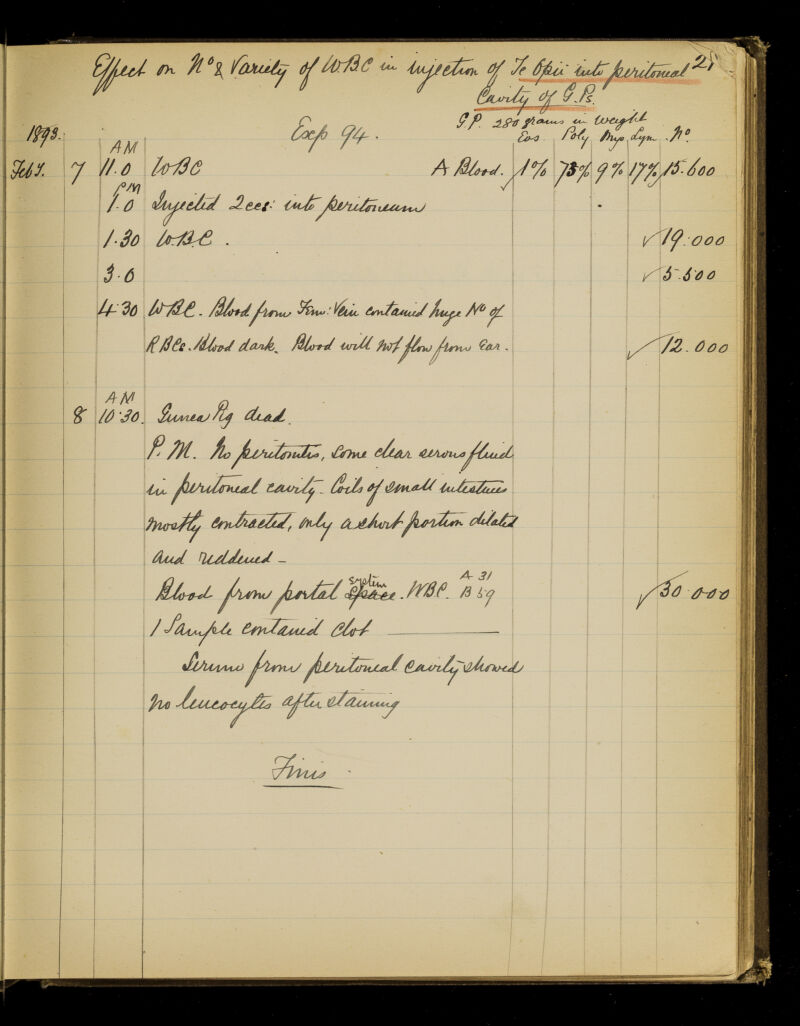 Effect on No & Variety of WBC in injection of Te Opii into peritoneal
Cavity of G.Ps.
G.P. 280 grams in weight
1893. Exp 94. Eos Poly Myo Lym. No.
AM
Feb 7 11.0 WBC A Blood. ✓ 1% 73% 9% 17% 15.600
PM
1.0 Injected 2ccs: into peritoneum
1.30 W.B.C. ✓ 19.000
3.0 ✓ 5.500
4.30 WBC. Blood from Fem: Vein contained huge No of
RBCs. Blood dark. Blood will not flow from Ear. ✓ 12.000
AM
8 10.30. Guinea Pig dead.
P.M. No peritonitis, some clear serous fluid
in peritoneal cavity. Coils of small intestines
mostly contracted, only a short portion dilated
and reddened –
system A 31
Blood from portal space. WBC. B 59 ✓ 30.000
1 Sample contained clot
Serum from peritoneal cavity showed
no leucocytes after staining
Finis.